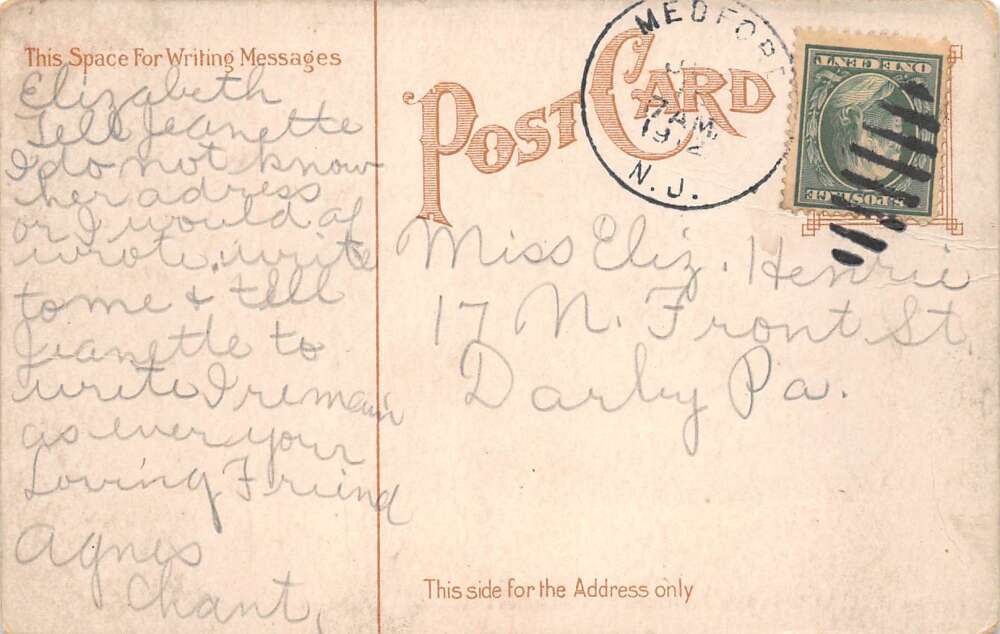 This Space For Writing Messages
Elizabeth
Tell Jeanette
I do not know
her adress
or I would of
wrote. write
to me & tell
Jeanette to
write I remain
as ever your
Loving Friend
Agnes
Chant,
POST CARD
MEDFORD
7 AM
1912
N. J.
ONE CENT
POSTAGE
Miss Eliz. Henrie
17 N. Front St.
Darby Pa.
This side for the Address only